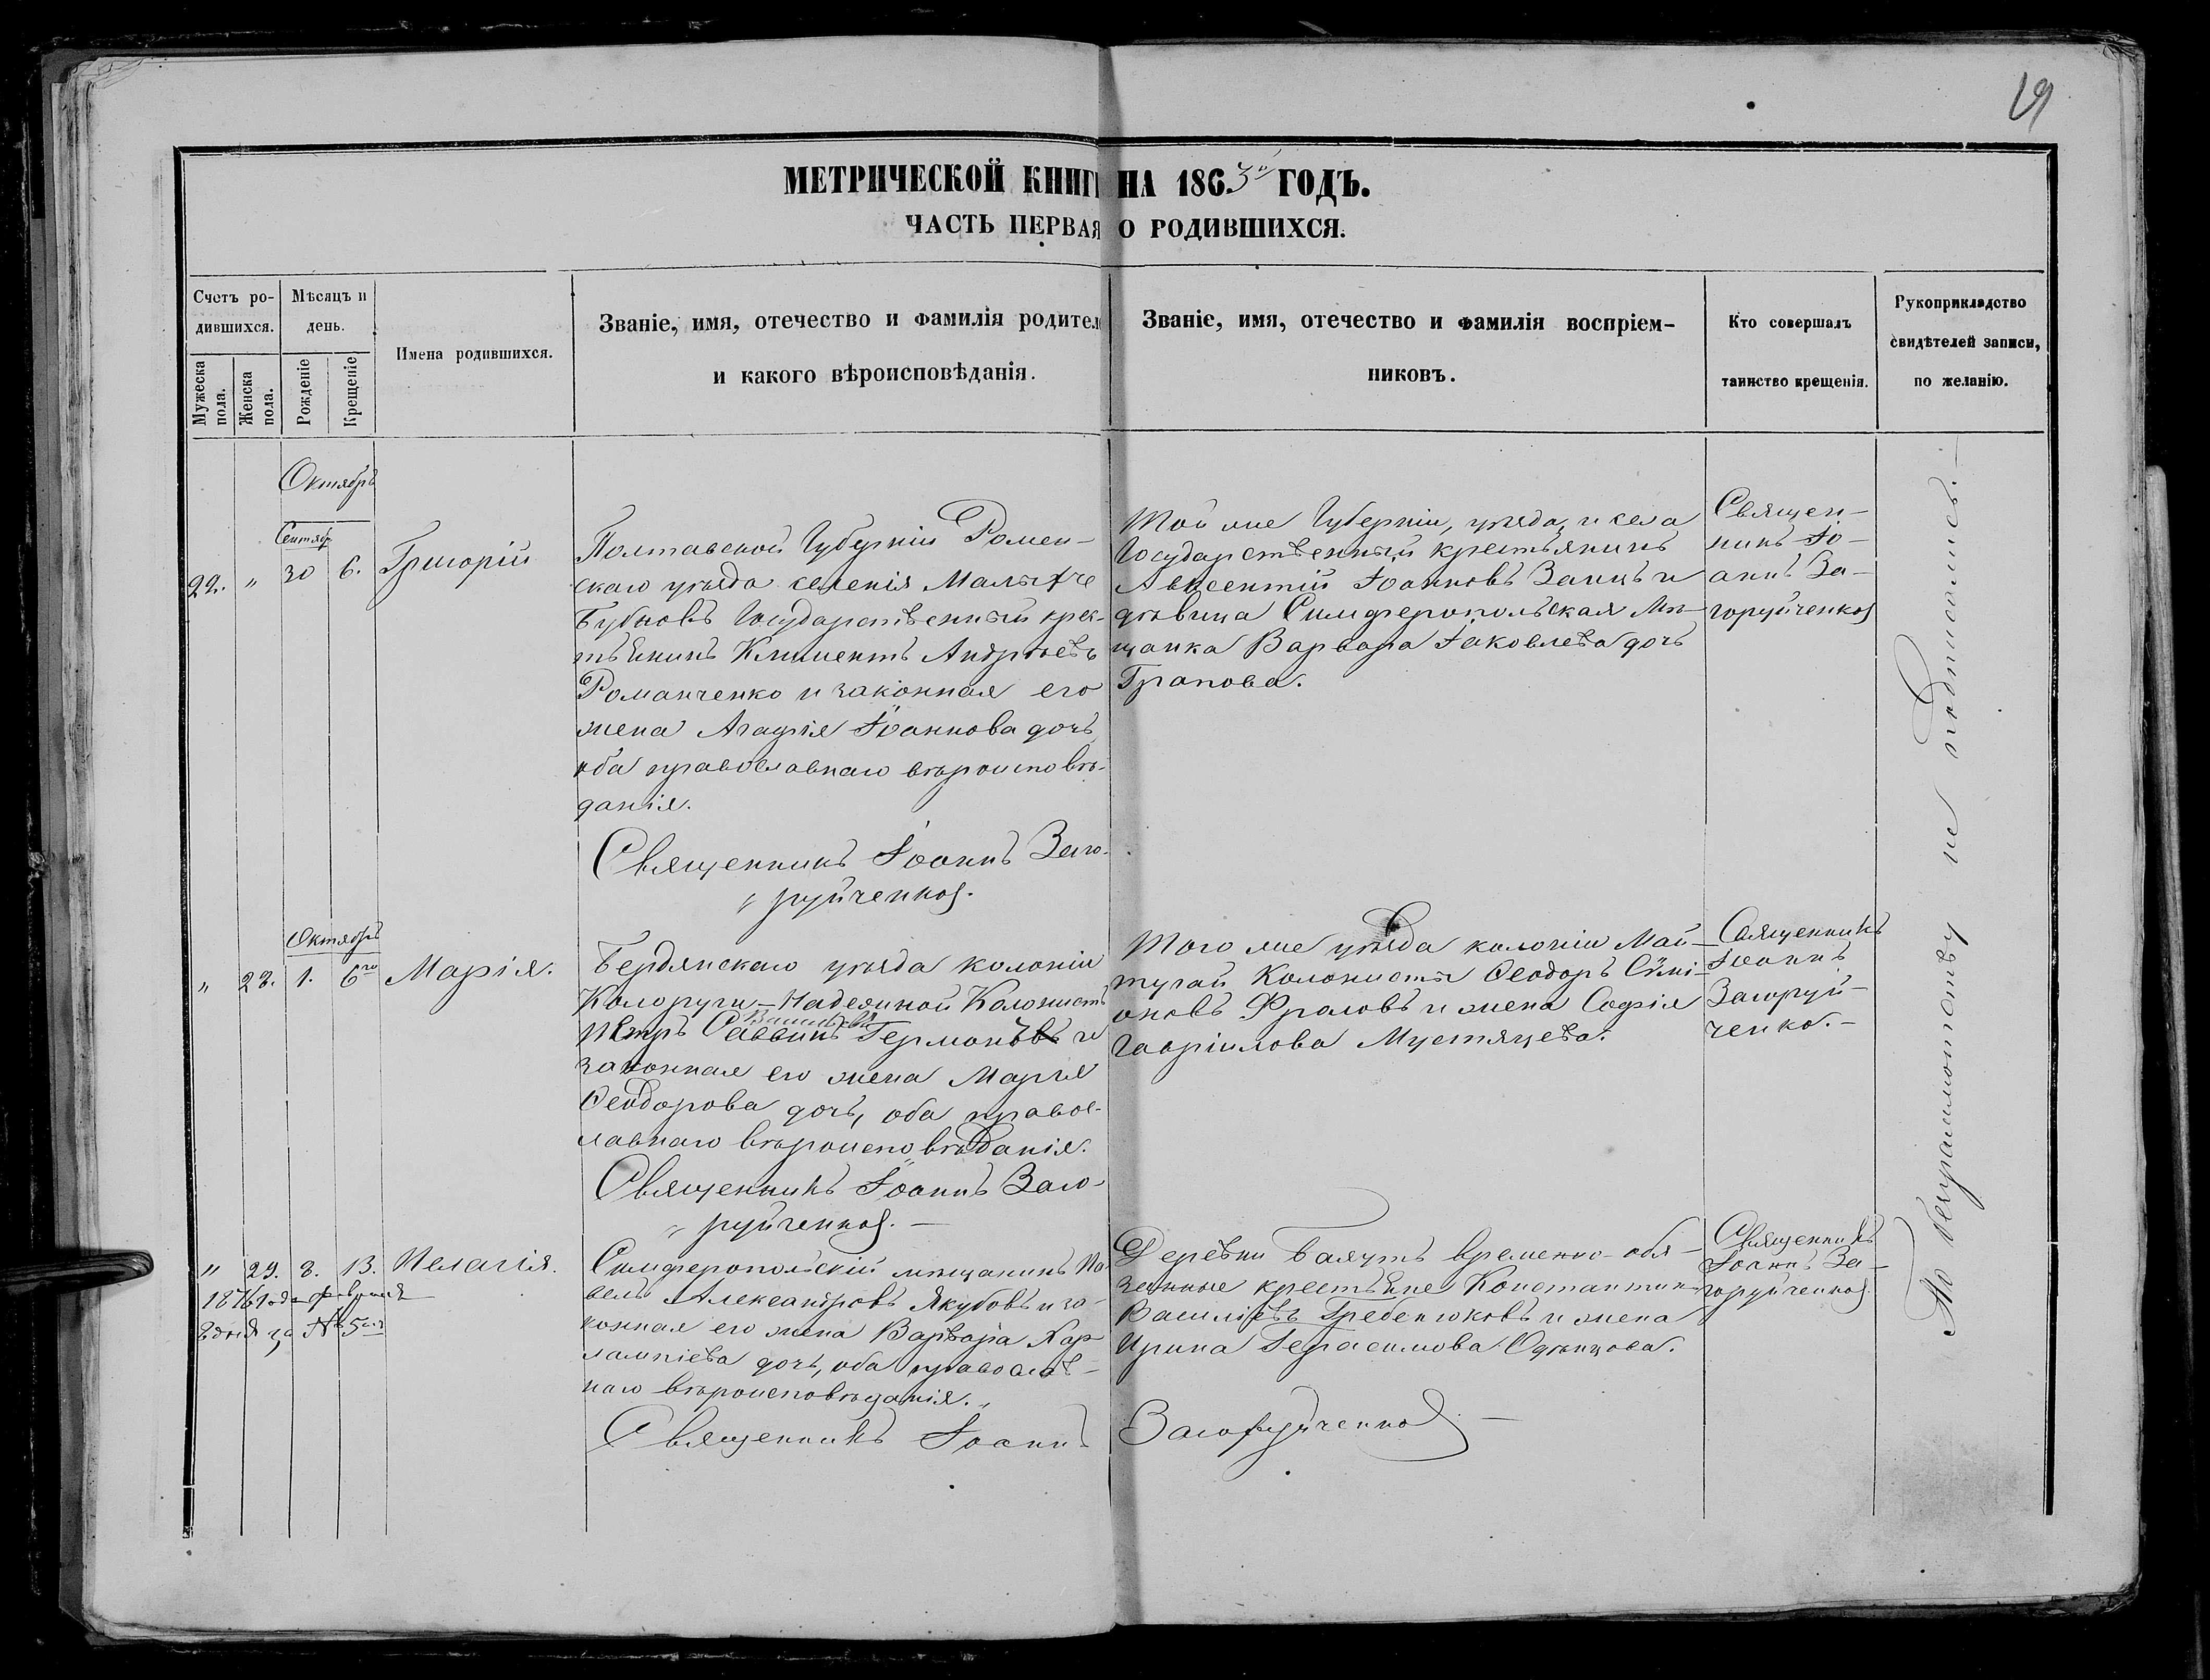 19
МЕТРИЧЕСКОЙ КНИГИ НА 1863й ГОДЪ.
ЧАСТЬ ПЕРВАЯ О РОДИВШИХСЯ.
Счетъ ро-
дившихся.
Мужеска пола.
Женска пола.
Мѣсяцъ и
день.
Рожденіе
Крещеніе
Имена родившихся.
Званіе, имя, отечество и фамилія родител
и какого вѣроисповѣданія.
Званіе, имя, отечество и фамилія воспріем-
никовъ.
Кто совершалъ
таинство крещенія.
Рукоприкладство
свидѣтелей записи,
по желанію.
Октябрь
Сентяб
22. " 30 6. Григорій
Полтавской Губерніи Ромен-
скаго уѣзда селенія Малыхе
Бубновъ Государственный крес-
тьянинъ Климентъ Андрѣевъ
Романченко и законная его
жена Агафія Іоаннова дочь
оба православнаго вѣроисповѣ-
данія.
Священникъ Іоаннъ Заго-
руйченко.
Той же Губерніи, уѣзда, и села
Государственный крестьянинъ
Авксентій Іоанновъ Заицъ и
дѣвица Симферопольская Мѣ-
щанка Варвара Іаковлева дочь
Грапова.
Священ-
никъ Іо-
аннъ За-
горуйченко
Октябрь
" 28. 1. 6го Марія.
Бердянскаго уѣзда колоніи
Колоруги-Надежиной Колонистъ
Петръ Саввинъ Гермонъ и
Васильевъ
законная его жена Марія
Ѳеодорова дочь, оба правос-
лавнаго вѣроисповѣданія.
Священникъ Іоаннъ Заго-
руйченко.
Того же уѣзда колоніи Май-
тугай Колонисты Ѳеодоръ Сѵмі-
оновъ Фроловъ и жена Софія
Гавріилова Мустяцева.
Священникъ
Іоаннъ
Загоруй-
ченко.
" 29. 8. 13. Пелагія.
1876 года февраля
2 дня за № 5
Симферопольскій мѣщанинъ Па
велъ Александровъ Якубовъ и за-
конная его жена Варвара Хар-
лампіева дочь, оба православ-
наго вѣроисповѣданія.
Священникъ Іоаннъ Загоруйченко
Деревни Баяутъ временно-обя-
занные крестьяне Константинъ
Василіевъ Гребенюковъ и жена
Ирина Герасимова Одѣнцова.
Священникъ
Іоаннъ За-
горуйченко
По безграмотству не подписались.